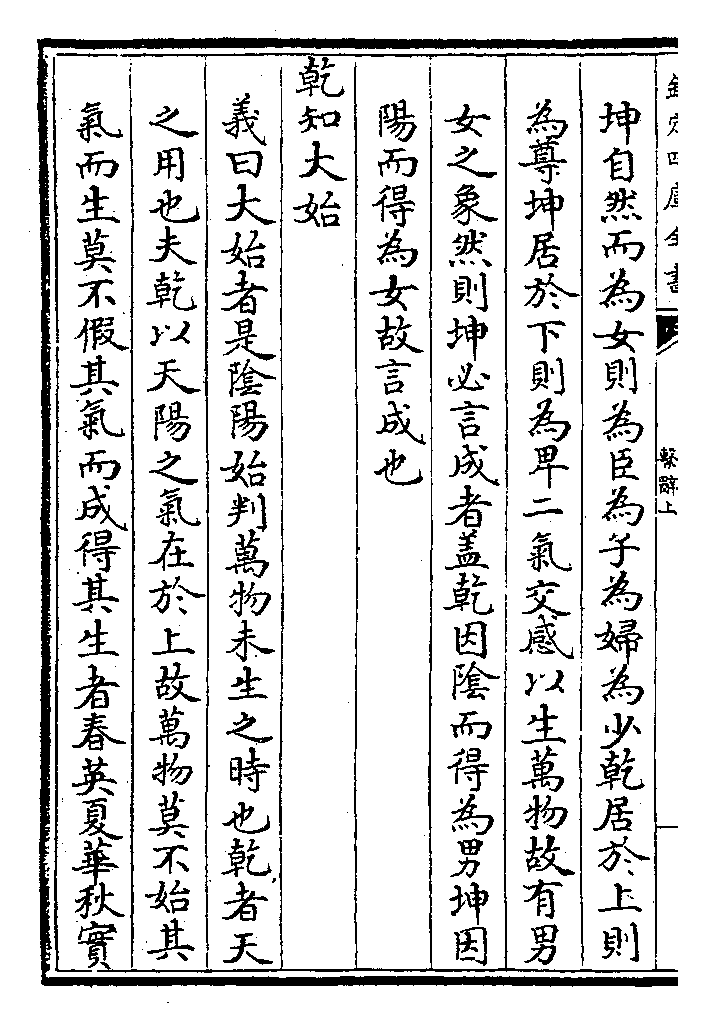 欽定四庫全書
繫辭上
坤自然而為女則為臣為子為婦為少乾居於上則
為尊坤居於下則為卑二氣交感以生萬物故有男
女之象然則坤必言成者盖乾因陰而得為男坤因
陽而得為女故言成也
乾知大始
義曰大始者是陰陽始判萬物未生之時也乾者天
之用也夫乾以天陽之氣在於上故萬物莫不始其
氣而生莫不假其氣而成得其生者春英夏華秋實